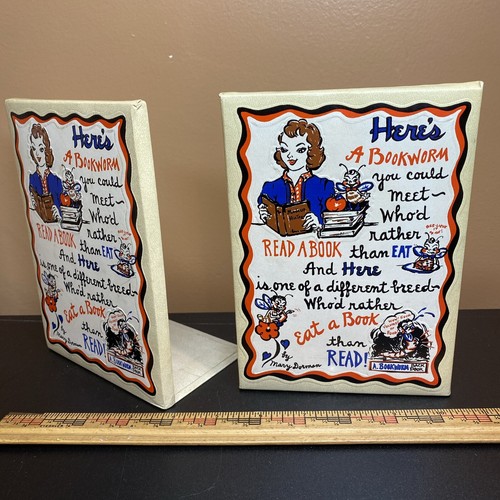 Here's
A BOOKWORM
you could
meet~
Who'd
rather
READ A BOOK than EAT
And Here
is one of a different breed~
Who'd rather
Eat a Book
than
READ!
by
Mary Dorman
A. BOOKWORM
Here's
A BOOKWORM
you could
meet~
Who'd
rather
READ A BOOK than EAT
And Here
is one of a different breed~
Who'd rather
Eat a Book
than
READ!
by
Mary Dorman
A. BOOKWORM